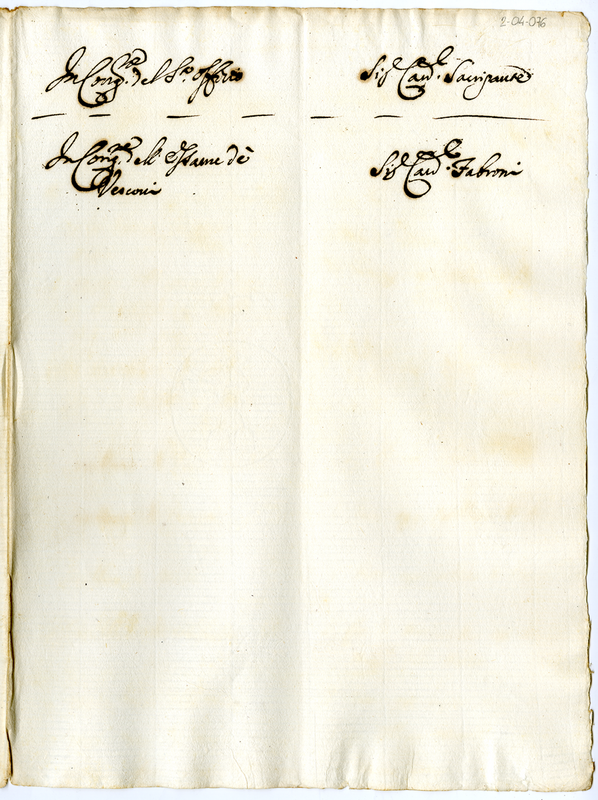 2-04-076
In Cong.ne del S.to Offitio
Sig.r Card.le Sacripante
In Cong.ne dell' Esame dè
Vescovi
Sig.r Card.le Fabroni